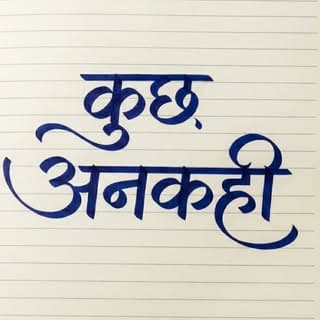 कुछ
अनकही